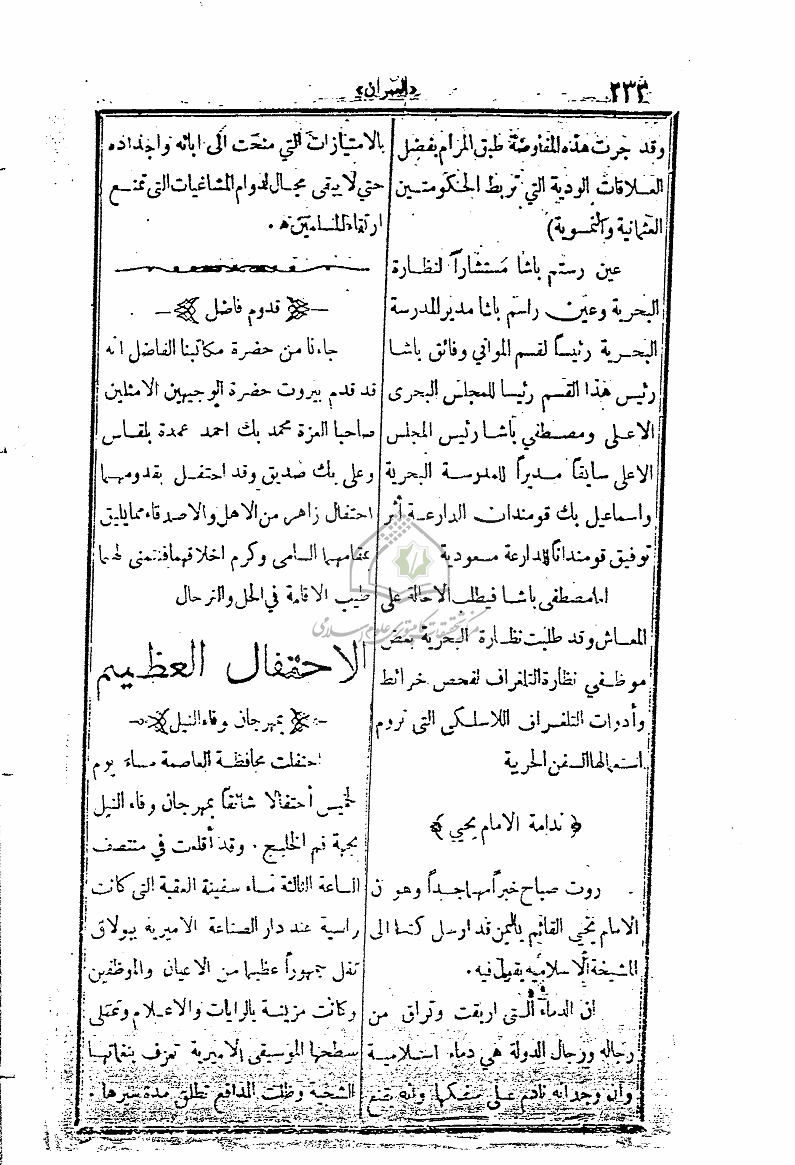 ٢٣٢
«العمران»
وقد جرت هذه المفاوضة طبق المرام بفضل
العلاقات الودية التي تربط الحكومتين
العثمانية والنمسوية)
عين رستم باشا مستشاراً لنظارة
البحرية وعين راسم باشا مدير المدرسة
البحرية رئيساً لقسم المواني وفائق باشا
رئيس هذا القسم رئيسا للمجلس البحري
الاعلى ومصطفي باشا رئيس المجلس
الاعلى سابقاً مديراً للمدرسة البحرية
واسماعيل بك قومندان الدارعة أثر
توفيق قومنداناً للدارعة مسعودية
اما مصطفى باشا فيطلب الاحالة على
المعاش وقد طلبت نظارة البحرية بعض
موظفي نظارة التلغراف لفحص خرائط
وأدوات التلغراف اللاسلكي التي تروم
استعمالها السفن الحربية
﴿ ندامة الامام يحيي ﴾
روت صباح خبراً مهاجداً وهو ن
الامام يحيي القائم باليمن قد ارسل كتابا الى
المشيخة الاسلاميه يقول فيه ·
ان الدماء التي اريقت وتراق من
رجاله ورجال الدولة هي دماء اسلامية
وان وجدانه نادم على سفكها وانه يقنع
بالامتيازات التي منحت الى ابائه واجداده
حتي لا يبقى مجال لدوام المشاغبات التى تمنع
ارتقاء المسلمين اه ·
﴿ قدوم فاضل ﴾
جاءنا من حضرة مكاتبنا الفاضل انه
قد قدم بيروت حضرة الوجيهين الامثلين
صاحبا العزة محمد بك احمد عمدة بلقاس
وعلى بك صديق وقد احتفل بقدومهما
احتفال زاهر من الاهل والاصدقاء مما يليق
بمقامهما السامى وكرم اخلاقهما فنتمنى لهما
طيب الاقامة في الحل والترحال
الاحتفال العظيم
﴿ بمهرجان وفاء النيل ﴾
احتفلت محافظة العاصمة مساء يوم
الخميس أحتفالا شائقاً بمهرجان وفاء النيل
بجهة فم الخليج · وقد أقلعت في منتصف
الساعة الثالثة مساء سفينة العقبة التي كانت
راسية عند دار الصناعة الاميرية ببولاق
تقل جمهوراً عظيما من الاعيان والموظفين
وكانت مزينة بالرايات والاعلام وتعتلى
سطحها الموسيقى الاميرية تعزف بنغماتها
الشجية وظلت المدافع تطلق مدة سيرها ·
مركز تحقيقات كامپيوتري علوم اسلامي